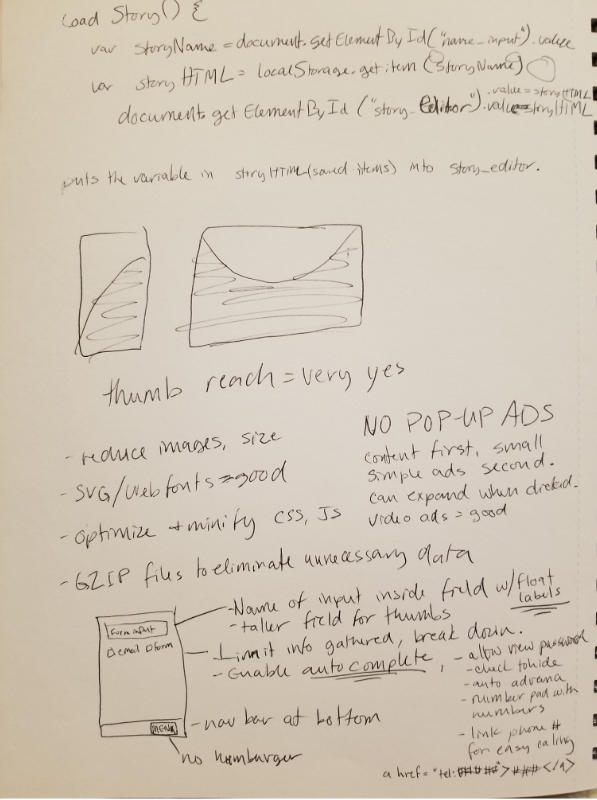 Load Story() {
var storyName = document.getElementById("name_input").value
var storyHTML = localStorage.getitem(storyName)
document.getElementById("story_editor").value=storyHTML
.value=storyHTML
puts the variable in storyHTML(saved items) into story_editor.
thumb reach = very yes
- reduce images, size
- SVG/Webfonts = good
- optimize + minify CSS, JS
- GZIP files to eliminate unnecessary data
NO POP-UP ADS
content first, small
simple ads second.
can expand when clicked.
video ads = good
form input
email form
MENU
- Name of input inside field w/float
labels
- taller field for thumbs
- Limit info gathered, break down.
- Enable autocomplete,
- allow view password
- click to hide
- auto advance
- number pad with
numbers
- link phone #
for easy calling
a href="tel:###"> ### </a>
- nav bar at bottom
no hamburger